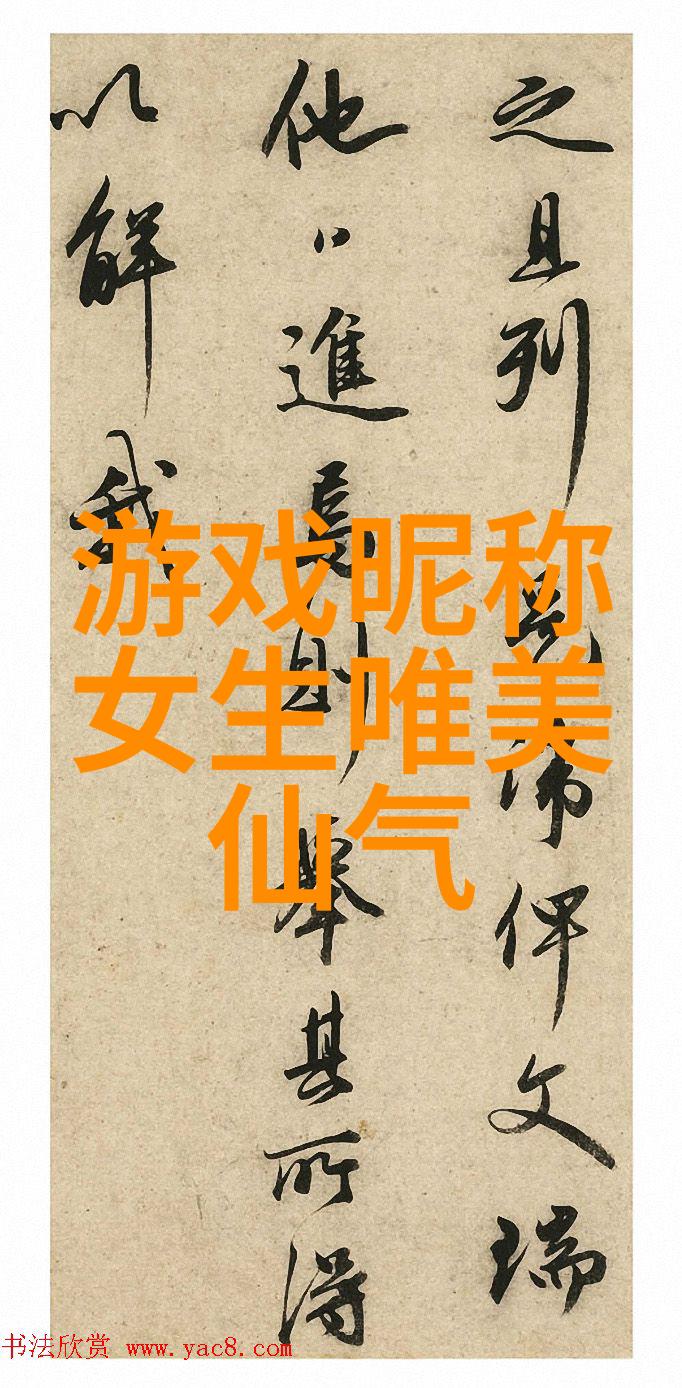 之且列俾文瑞
他日進則舉其所得
以解
游戏昵称
女生唯美
仙气
书法欣赏 www.yac8.com